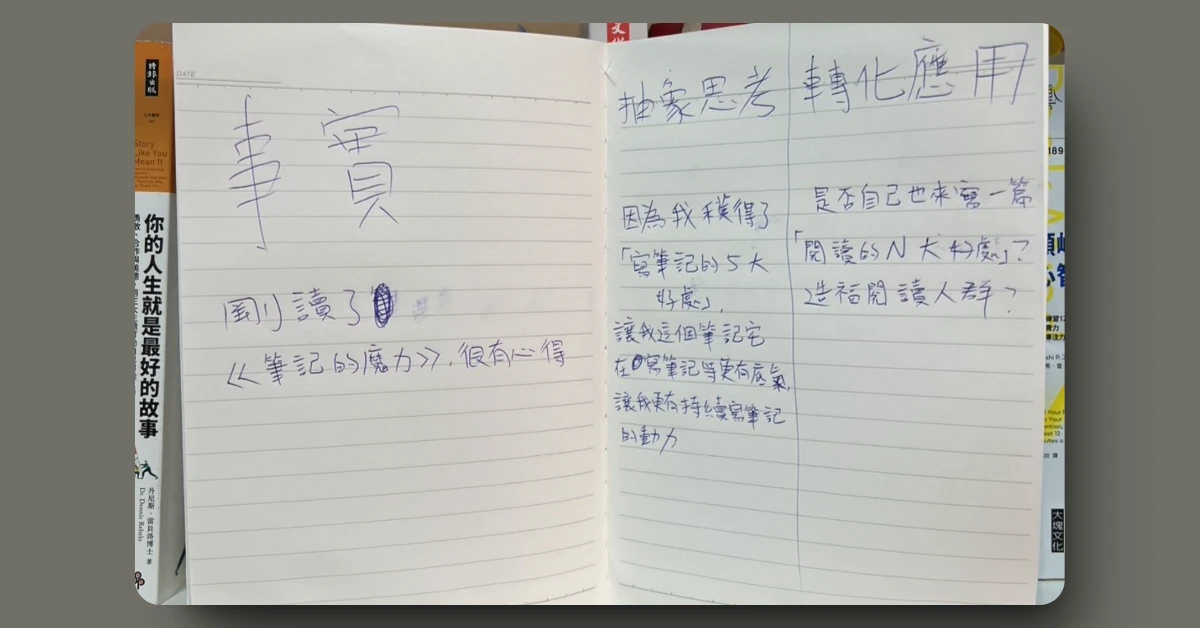 時報出版
Story
Like You
Mean It
你的人生就是最好的故事
丹尼斯・雷貝洛博士 著
Dr. Dennis Rebelo
DATE
事實
剛讀了
《筆記的魔力》,很有心得
抽象思考
因為我穫得了
「寫筆記的5大
好處」,
讓我這個筆記宅
在寫筆記時更有底氣,
讓我更有持續寫筆記
的動力
轉化應用
是否自己也來寫一篇
「閱讀的N大好處」?
造福閱讀人群?
189
大塊文化